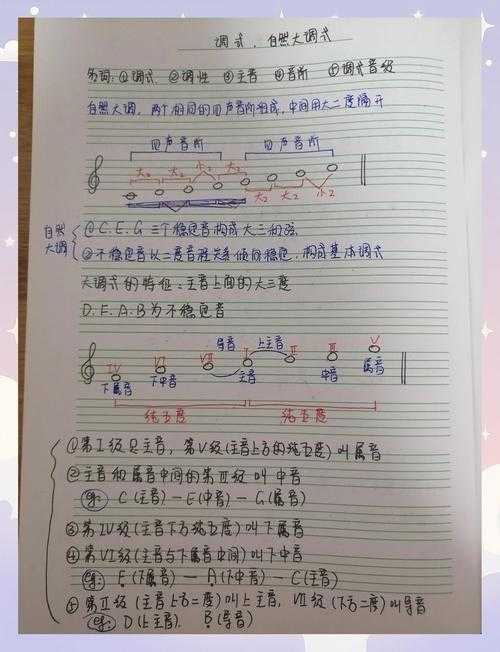 调式、自然大调式
名词: ①调式 ②调性 ③主音 ④音所 ⑤调式音级
自然大调,两个相同的四声音所组成,中间用大二度隔开
四声音所 四声音所
大2 大2 小2 大2
大2 大2 小2
自然大调
①C.E.G 三个稳定音构成大三和弦
②不稳定音以二度音程关系倾向稳定,构成基本调式
大调式的特征:主音上面的大三度
D.F.A.B为不稳定音
导音 上主音
IV VI VII I II III V
下属音 下中音 主音 中音 属音
纯五度 纯五度
①第I级是主音,第V级(主音上方的纯五度)叫属音
②主音和属音中间的第III级叫中音
eg: C(主音)—E(中音)—G(属音)
③第IV级(主音下方纯五度)叫下属音
④第VI级(主音与下属音中间)叫下中音
eg: F(下属音)—A(下中音)—C(主音)
⑤第II级(主音上方二度)叫上主音, VII级(下方二度)叫导音
eg: D(上主音). B(导音)